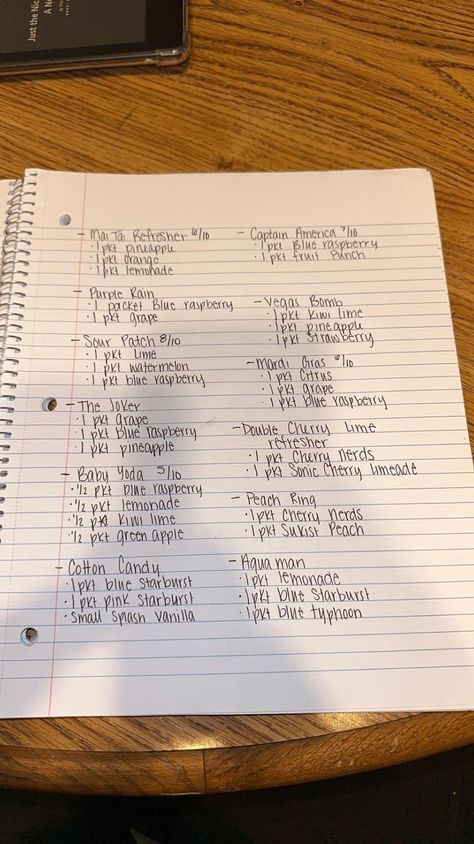 Just the Nic
A No
- Mai Tai Refresher 6/10
· 1 pkt pineapple
· 1 pkt orange
· 1 pkt lemonade
- Purple Rain
· 1 packet Blue raspberry
· 1 pkt grape
- Sour Patch 8/10
· 1 pkt lime
· 1 pkt watermelon
· 1 pkt blue raspberry
- The Joker
· 1 pkt grape
· 1 pkt blue raspberry
· 1 pkt pineapple
- Baby Yoda 5/10
· 1/2 pkt blue raspberry
· 1/2 pkt lemonade
· 1/2 pkt kiwi lime
· 1/2 pkt green apple
- Cotton Candy
· 1 pkt blue starburst
· 1 pkt pink starburst
· small splash vanilla
- Captain America 7/10
· 1 pkt Blue raspberry
· 1 pkt fruit Punch
- Vegas Bomb
· 1 pkt kiwi lime
· 1 pkt pineapple
· 1 pkt strawberry
- Mardi Gras 6/10
· 1 pkt Citrus
· 1 pkt grape
· 1 pkt blue raspberry
- Double Cherry Lime
refresher
· 1 pkt Cherry nerds
· 1 pkt Sonic Cherry limeade
- Peach Ring
· 1 pkt Cherry nerds
· 1 pkt Sukist Peach
- Aqua man
· 1 pkt lemonade
· 1 pkt blue Starburst
· 1 pkt blue typhoon